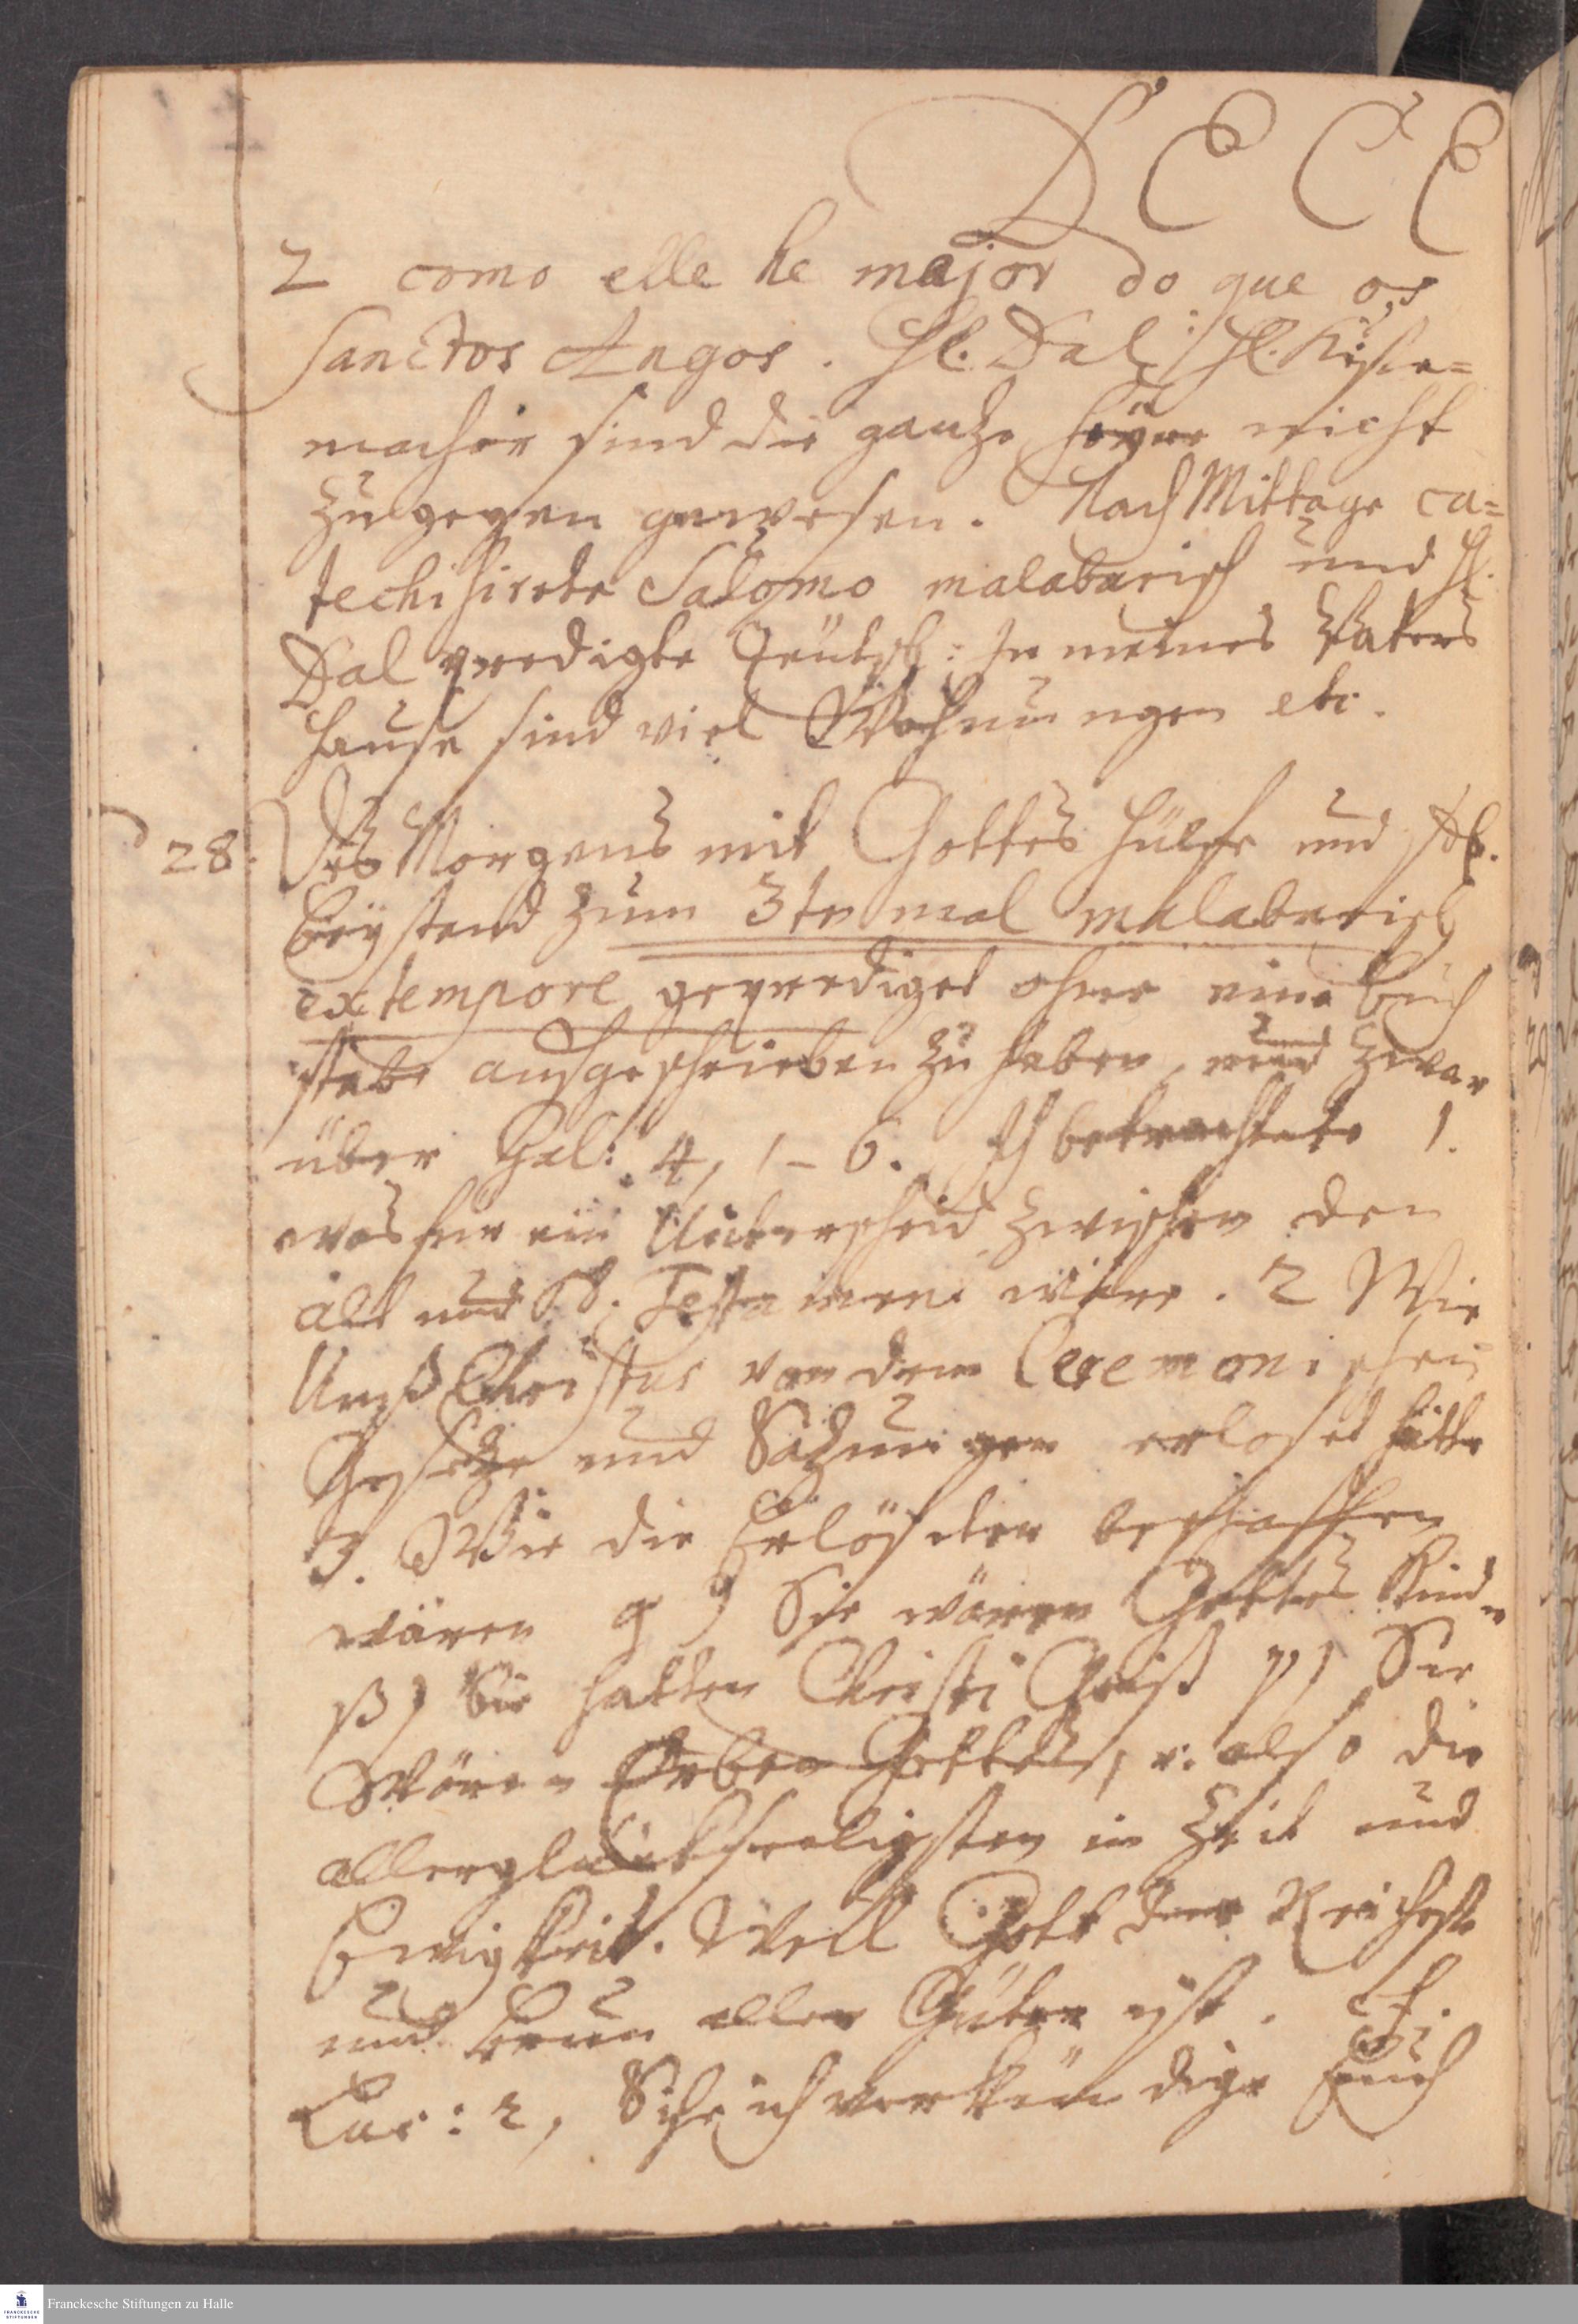 DECE
2 como elle he major do que os
Sanctos Angos. H. Dal: H. Kiste-
macher sind die gantze heyre nicht
zugegen gewesen. Nach Mittage ca-
techisirete Salomo malabarisch und H.
Dal predigte Teütsch: In meines Vaters
Hause sind viel Wohnungen etc.
28. Des Morgens mit Gottes Hülfe und
Beystand zum 3ten mal malabarisch
extempore geprediget ohne eine Buch
stabe aufgeschrieben zu haben, und zwar
über Gal: 4, 1-6. Ich betrachtete 1.
was für ein Unterscheid zwischen den
alt und N. Testament wäre. 2 Wie
Unß Christus von dem Ceremonischen
Gesetze und Satzungen erloset hätte
3. Wie die Erlöseten beschaffen
wären α) Sie wären Gottes Kinder
β) Sie hatten Christi Geist γ) Sie
Wären Erben Gottes, u. also die
allerglückseeligsten in Zeit und
Ewigkeit. Weil Gott der Reicheste
und Brun aller Güter ist. cf.
Luc: 2, Sihe ich verkündige Euch
Franckesche Stiftungen zu Halle